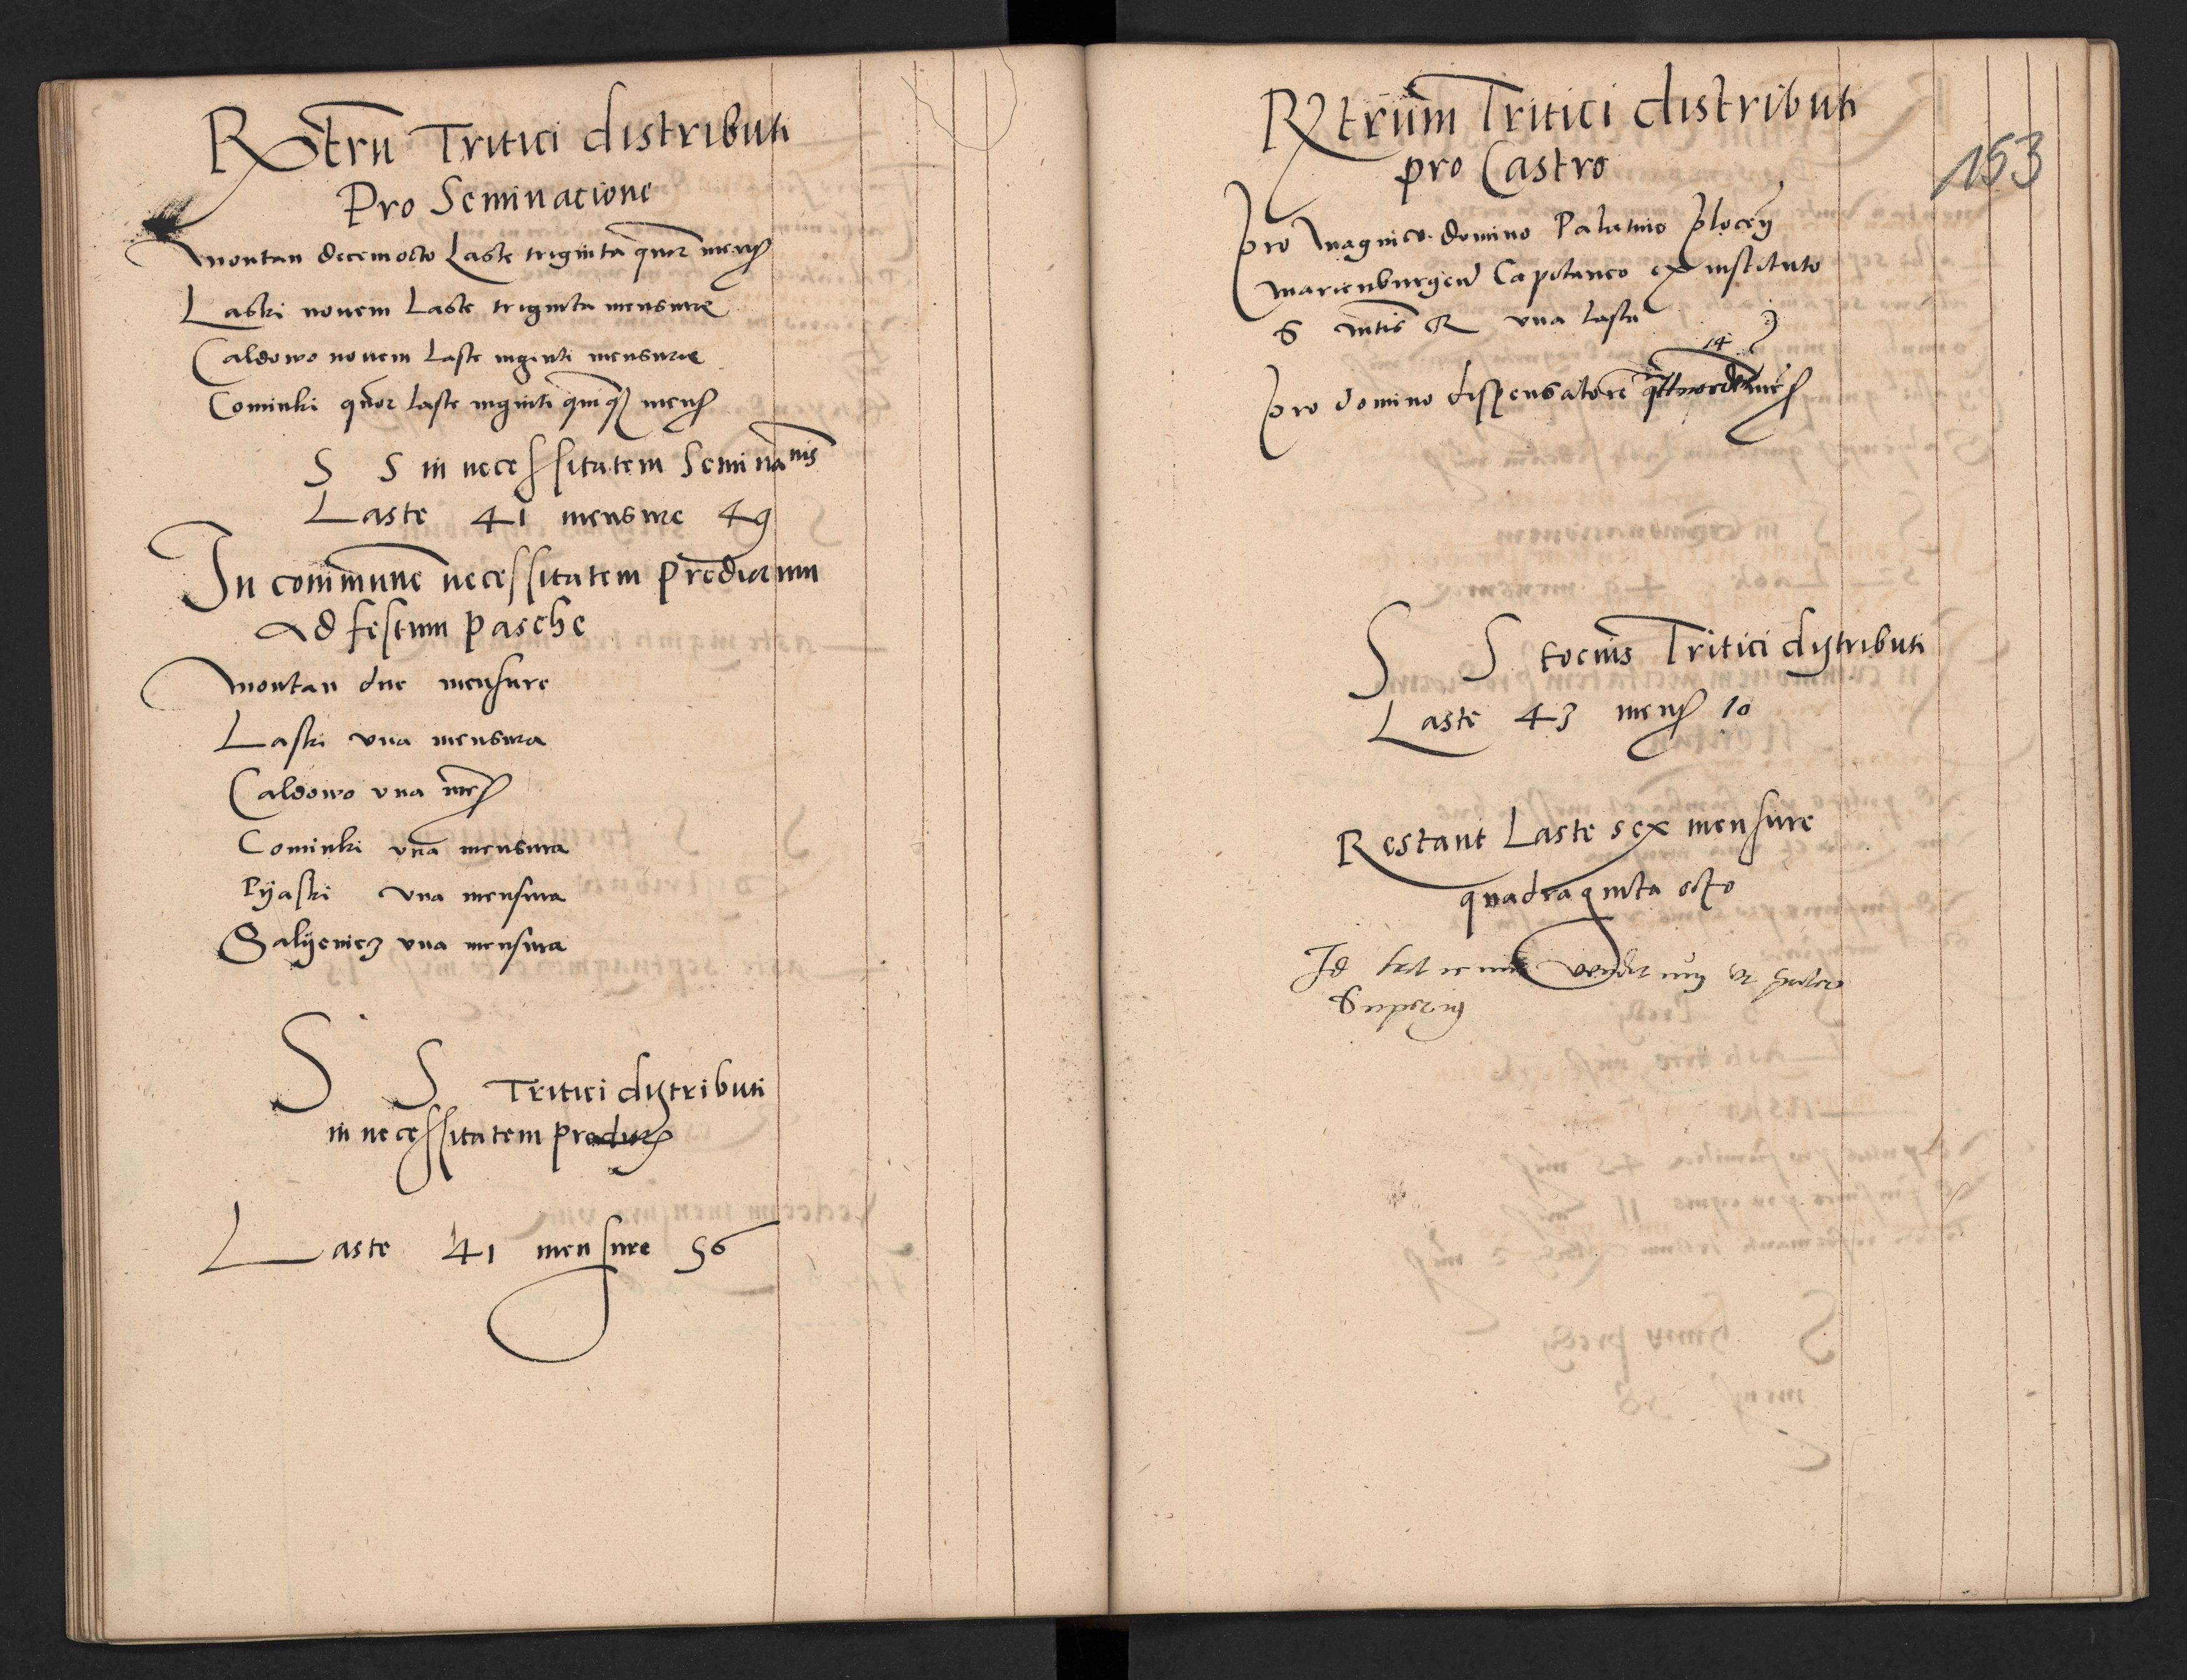 Rgtrũ Tritici distributi
Pro Seminacione
Montan decemocto Laste triginta quor mens
Laski novem Laste triginta mensure
Caldowo novem Laste viginti mensure
Cominki quor laste viginti quinq mens
S S in necessitatem Seminanis
Laste 41 mensure 49
In commune necessitatem prediorum
ad festum pasche
Montan due mensure
Laski una mensura
Caldowo una mens
Cominki una mensura
Pijaski una mensura
Balijenicz una mensura
S S Tritici distributi
in necessitatem predior
Laste 41 mensure 56
Rgtrum Tritici distributi
pro Castro
153
pro Magnico domino Palatino plocen
marienburgen Capitaneo ex instituto
S una lasta
14
pro domino dispensatore mens
S S tocius Tritici distributi
Laste 43 mens 10
Restant Laste sex mensure
quadraginta octo
Id est
Superius